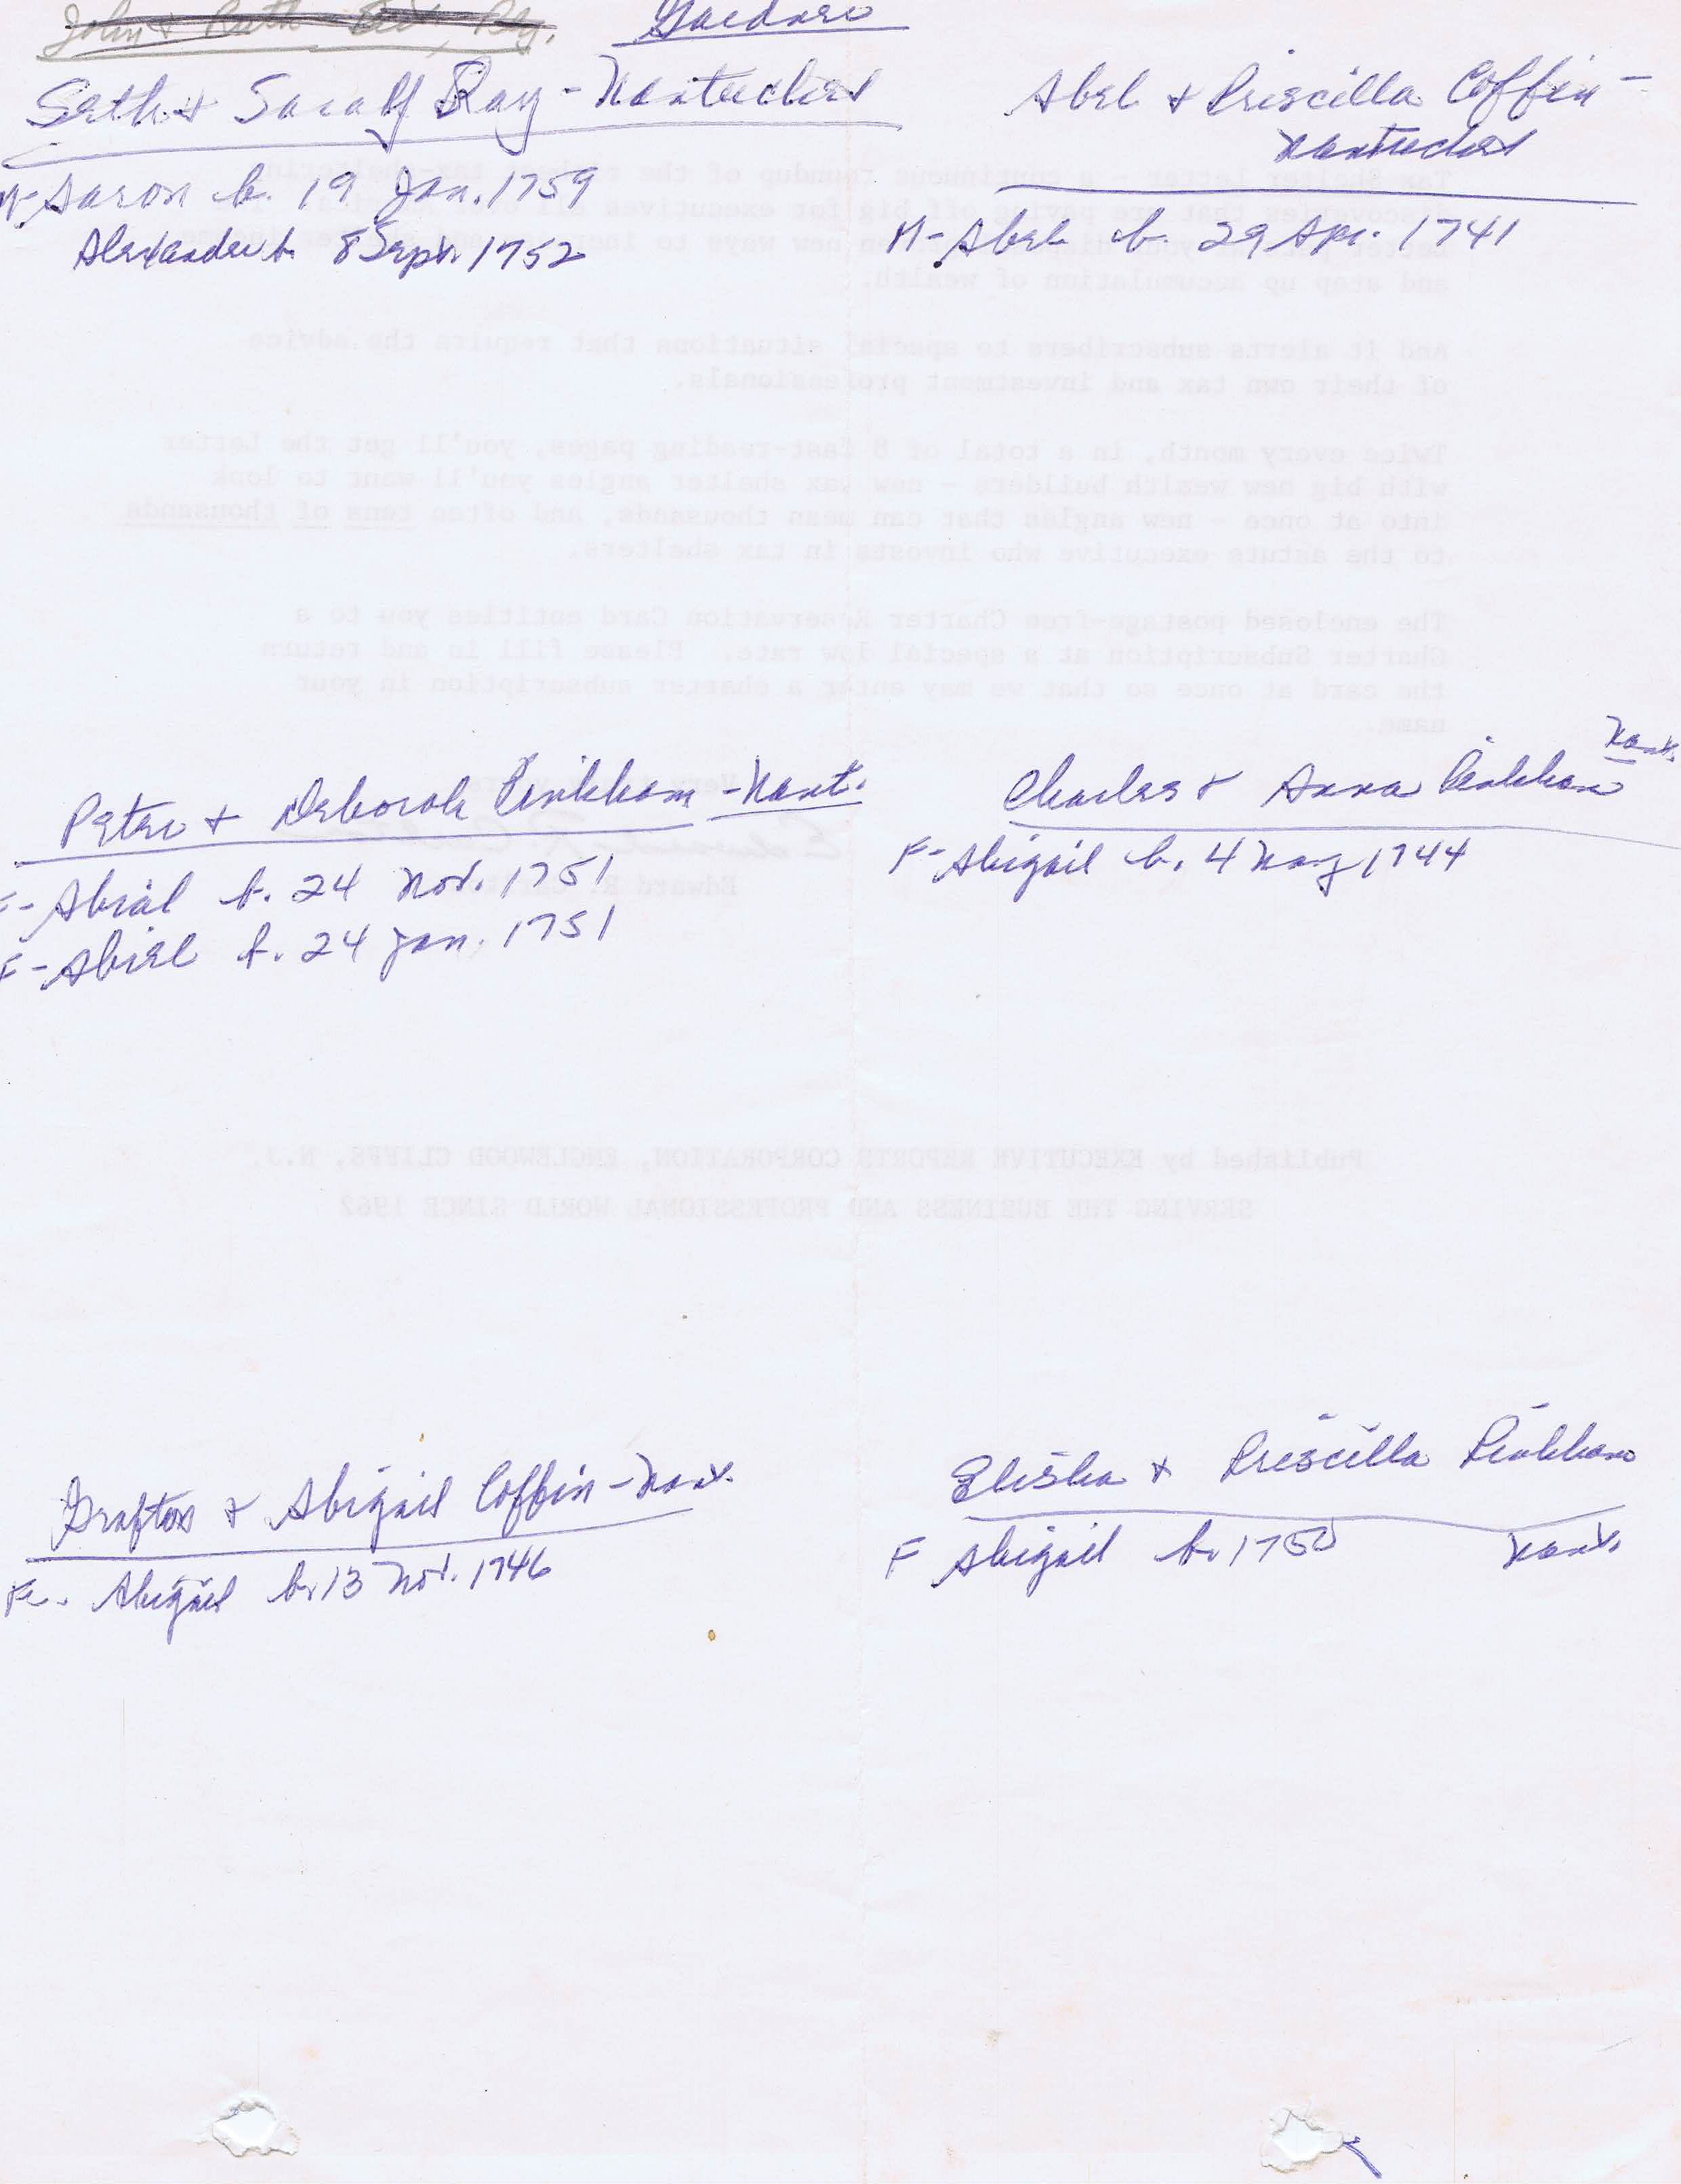 John & Ruth
Gardner
Seth & Sarah Ray - Nantucket
M- Aaron b. 19 Jan. 1759
Alexander b. 8 Sept. 1752
Abel & Priscilla Coffin -
Nantucket
M- Abel b. 29 Apr. 1741
Peter & Deborah Pinkham - Nant.
F- Abial b. 24 Nov. 1751
F- Abiel b. 24 Jan. 1751
Charles & Anna Pinkham Nant.
F- Abigail b. 4 May 1744
Grafton & Abigail Coffin - Nant.
F-. Abigail b. 13 Nov. 1746
Elisha & Priscilla Pinkham
F Abigail b. 1750 Nant.
Tax Shelter Letter - a continuous roundup of the tax-sheltering
discoveries that are paying off big for executives
and step up accumulation of wealth.
And it alerts subscribers to special situations that require the advice
of their own tax and investment professionals.
Twice every month, in a total of 8 fast-reading pages, you'll get the Letter
with big new wealth builders - new tax shelter angles you'll want to look
into at once - new angles that can mean thousands, and often tens of thousands
to the astute executive who invests in tax shelters.
The enclosed postage-free Charter Reservation Card entitles you to a
Charter Subscription at a special low rate. Please fill in and return
the card at once so that we may enter a charter subscription in your
name.
Very
Edward R.
Published by EXECUTIVE REPORTS CORPORATION, ENGLEWOOD CLIFFS, N.J.
SERVING THE BUSINESS AND PROFESSIONAL WORLD SINCE 1962